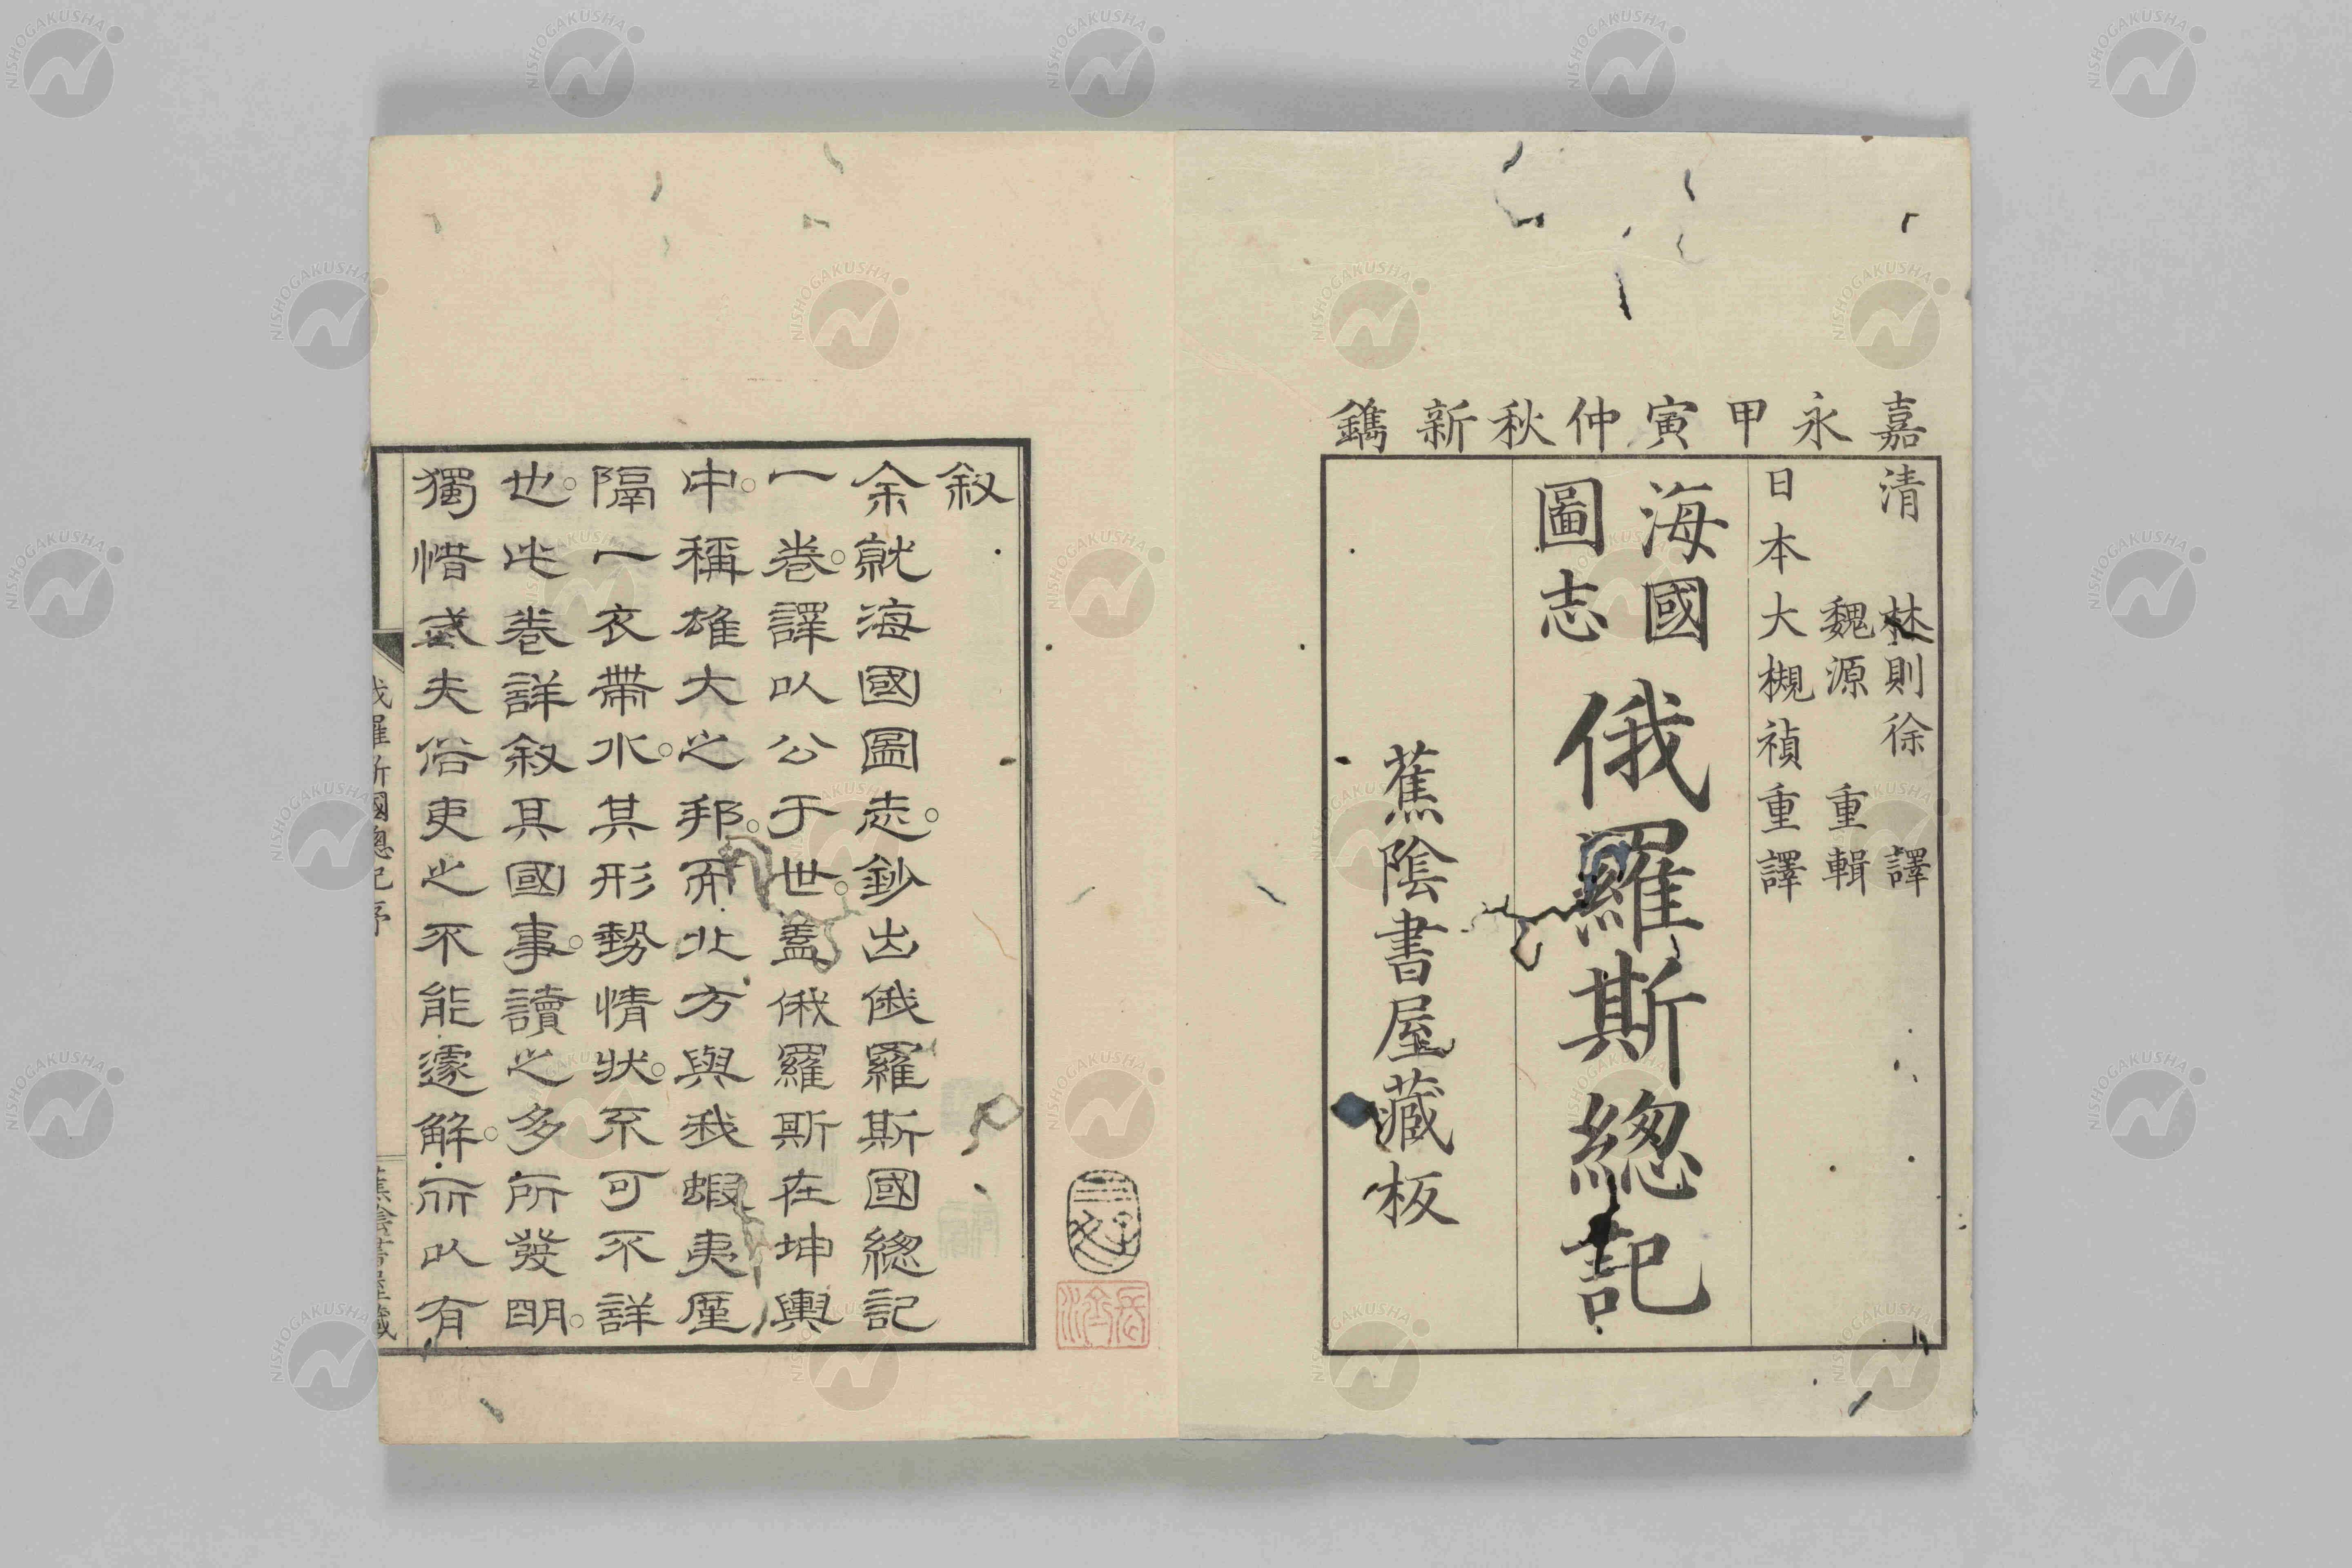 嘉永甲寅仲秋新鐫
清 林則徐 譯
魏源 重輯
日本大槻禎重譯
海國
圖志
俄羅斯總記
蕉陰書屋藏板
叙
余就海國圖志。鈔出俄羅斯國總記
一卷。譯以公于世。蓋俄羅斯在坤輿
中。稱雄大之邦。而北方與我蝦夷厪
隔一衣帶水。其形勢情狀。不可不詳
也。此卷詳叙其國事。讀之多所發明。
獨惜武夫俗吏之不能遽解。所以有
俄羅斯國總記序
蕉陰書屋藏
NISHOGAKUSHA